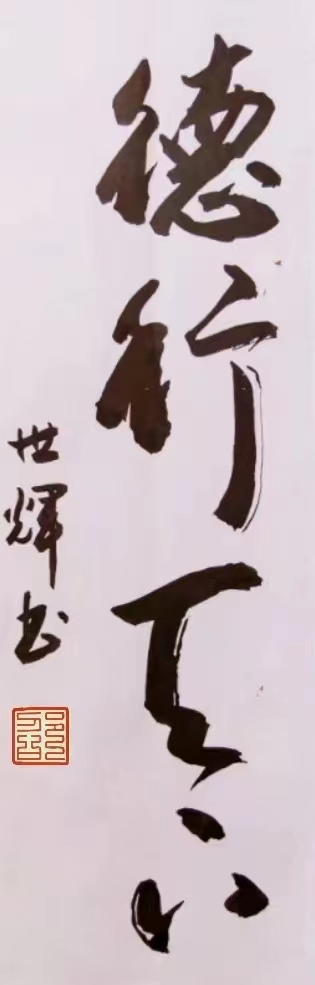 德行天下
世辉书